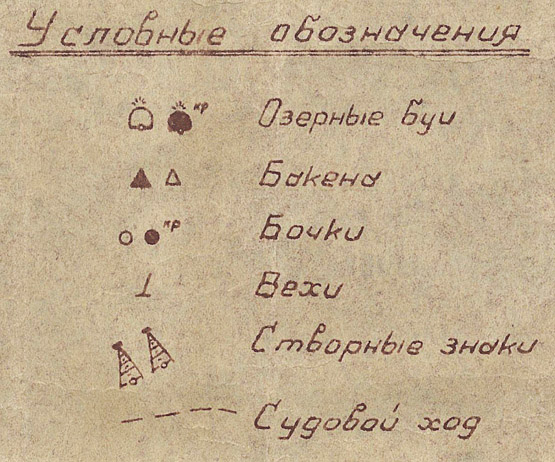 Условные обозначения
кр Озерные буи
Бакена
кр Бочки
Вехи
Створные знаки
Судовой ход